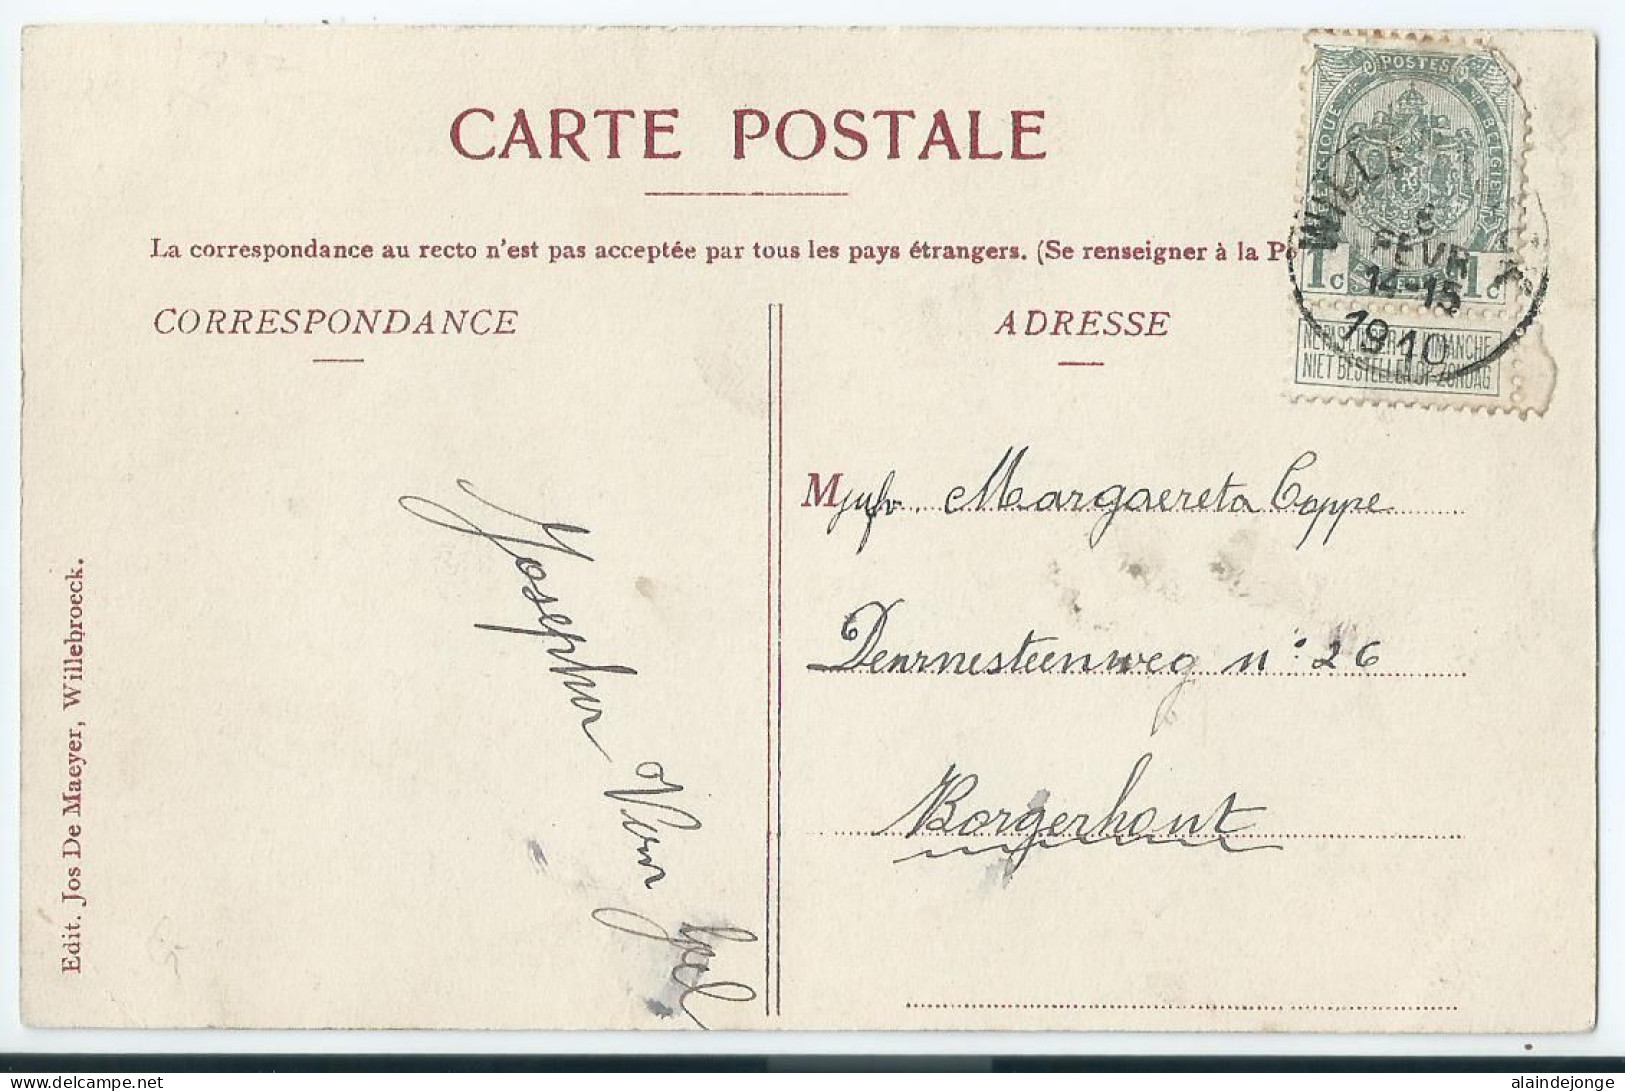 CARTE POSTALE
La correspondance au recto n'est pas acceptée par tous les pays étrangers. (Se renseigner à la Po
CORRESPONDANCE
ADRESSE
POSTES
BELGIQUE
BELGIE
1c 1c
NE PAS LIVRER LE DIMANCHE
NIET BESTELLEN OP ZONDAG
WILLE
FEVR
14-15
1910
Mejufvr. Margaereta Cappe
Deurnesteenweg n° 26
Borgerhout
Josephus Van
Edit. Jos De Maeyer, Willebroeck.
alaindejonge